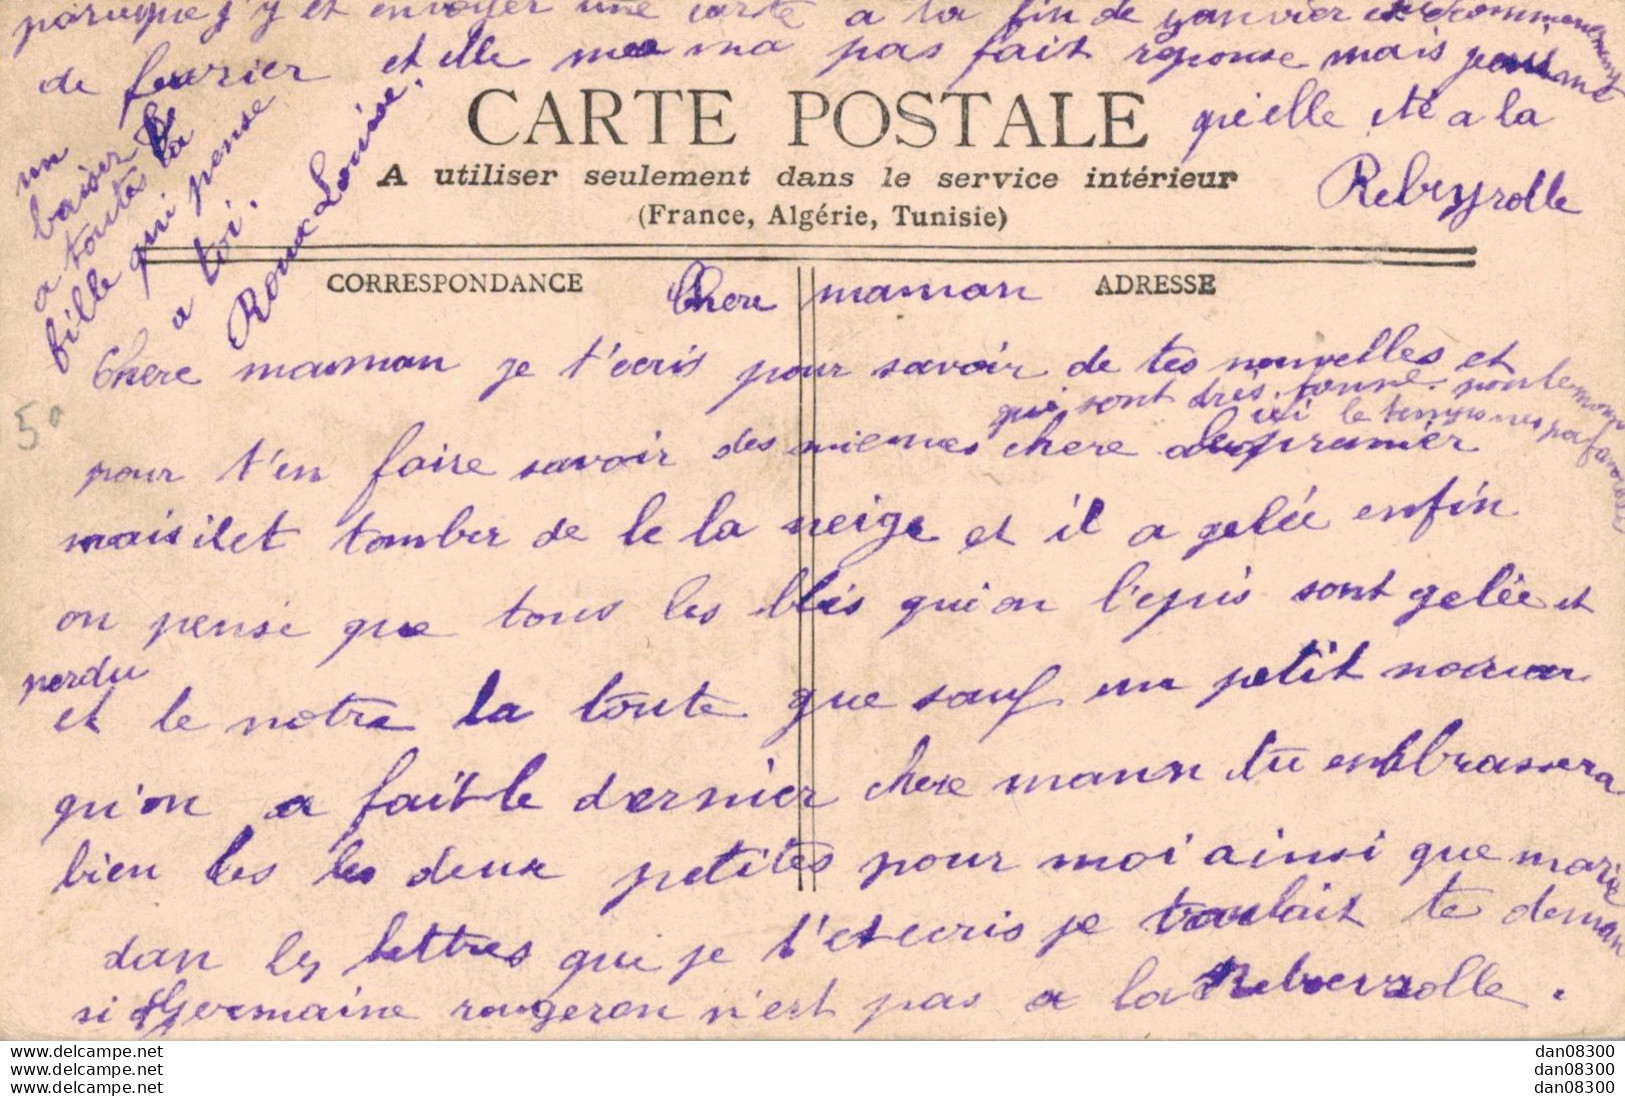 parceque j'y et envoyer une carte a la fin de janvier et
de fevrier et elle ma pas fait reponse mais
qu'elle ete a la
Rebeyrolle
un
baiser
a toutes la
fille qui pense
a toi.
Roux Louise.
CARTE POSTALE
A utiliser seulement dans le service intérieur
(France, Algérie, Tunisie)
CORRESPONDANCE
ADRESSE
Chere maman
Chere maman je t'ecris pour savoir de tes nouvelles et
qui sont très bonne. pour le moment
ici le temps
pour t'en faire savoir des miennes chere premier
mais il et tomber de le la neige et il a gelée enfin
on pense que tous les blés qu'on l'epis sont gelée et
perdu
et le notre la toute que sauf un petit
qu'on a fait le dernier chere maman tu embrassera
bien les les deux petites pour moi ainsi que marie
dan les lettres que je t'et ecris je voulait te deman
si Germaine rougeron n'est pas a la Rebeyrolle.
50
www.delcampe.net
www.delcampe.net
www.delcampe.net
dan08300
dan08300
dan08300